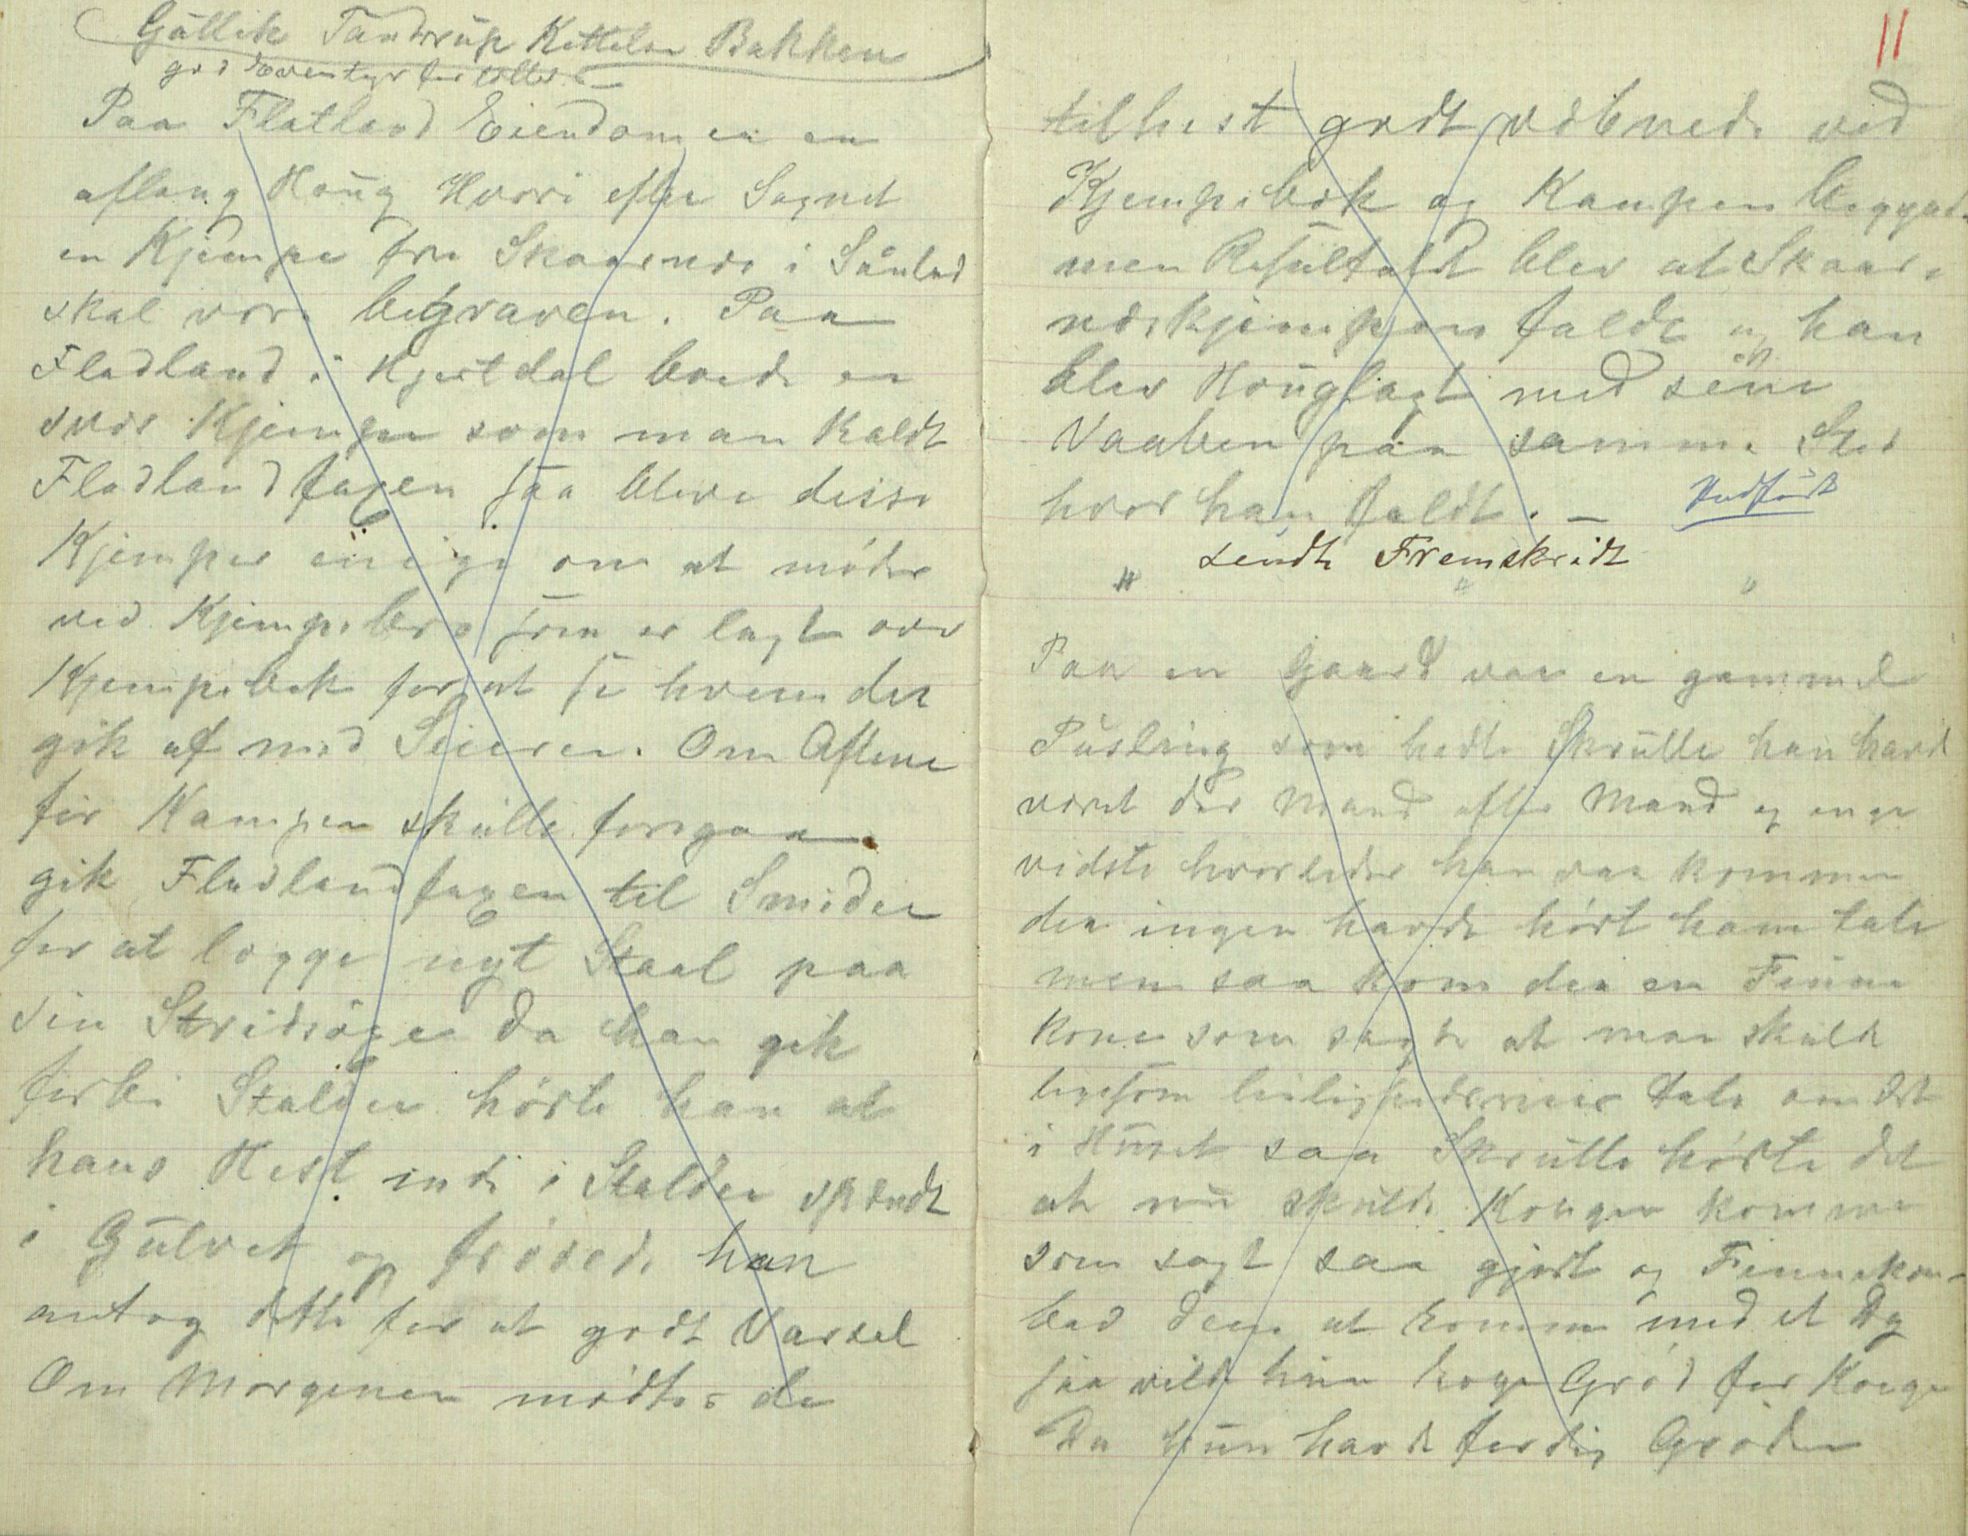 Gullik Tandrup Kittelsen Bakken
god Eventyrforteller
Paa Flatland Eiendom er en
aflang Houg Hvori efter Sagnet
en Kjempe fra Skaarnes i Sauland
skal være begraven. Paa
Fladland i Hjertdal boede en
svær Kjempe som man kaldt
Fladlandfaxen saa bleve disse
Kjemper enige om at møder
ved Kjempebro som er lagt over
Kjempebek for at se hvem der
gik af med Seieren. Om Aftene
før Kampen skulle foregaa
gik Fladlandfaxen til Smiden
for at lægge nyt Staal paa
sin Stridsøxe da han gik
forbi Stalden hørte han at
hans Hest inde i Stalden spændt
i Gulvet og frøsede han
antog dette for at godt Varsel
Om Morgenen mødtes de
11
tilhest godt væbnede ved
Kjempebæk og Kampen begynte
men Resultatet blev at Skaar-
neskjempen faldt og han
blev Houglagt med sine
Vaaben paa samme Sted
hvor han faldt. —
Indført
" sendt Fremskridt " "
Paa en Gaard var en gammel
Pusling som hedte Skrulle han havde
været der Mand efter Mand og inge
vidste hvorledes han var kommen
der ingen havde hørt ham tale
men saa kom der en Finne
kone som sagde at man skulde
ligesom leilighedsvis tale om det
i Huset saa Skrulle hørte det
at nu skulde Kongen komme
som sagt saa gjort og Finnekone
bad dem at komme med et Æg
saa vilde hun koge Grød for Konge
Da hun havde ferdig Grøden